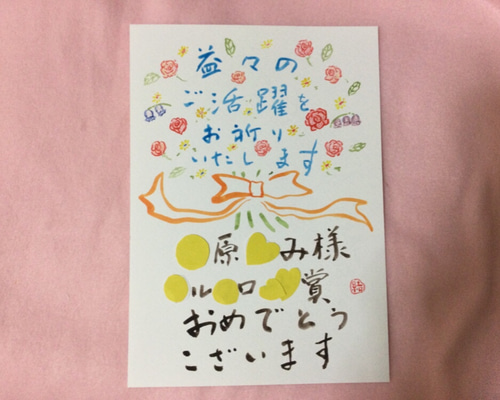 益々の
ご活躍を
お祈り
いたします
原 み様
ル ロ 賞
おめでとう
ございます